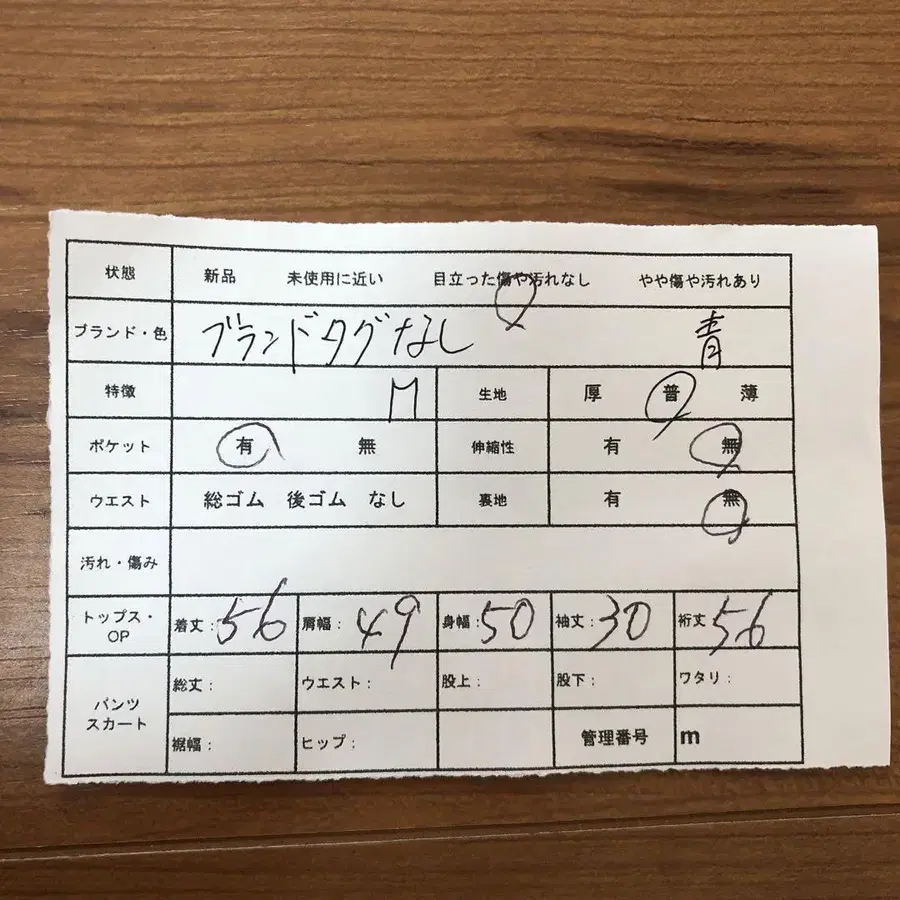 状態 新品 未使用に近い 目立った傷や汚れなし やや傷や汚れあり
ブランド・色 ブランドタグなし 青
特徴 M 生地 厚 普 薄
ポケット 有 無 伸縮性 有 無
ウエスト 総ゴム 後ゴム なし 裏地 有 無
汚れ・傷み
トップス・OP 着丈:56 肩幅:49 身幅:50 袖丈:30 裄丈:56
パンツ スカート 総丈: ウエスト: 股上: 股下: ワタリ:
裾幅: ヒップ: 管理番号 m